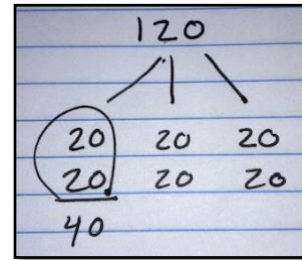 120
20 20 20
20 20 20
40